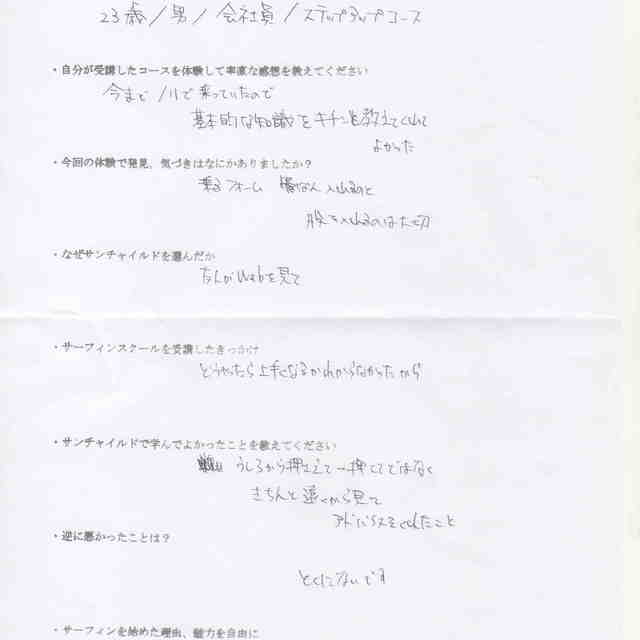 23歳/男/会社員/ステップアップコース
・自分が受講したコースを体験して率直な感想を教えてください
今まで ノリで乗っていたので
基本的な知識をキチンと教えてくれて
よかった
・今回の体験で発見、気づきはなにかありましたか?
乗るフォーム 入れるのと
入れるのは大切
・なぜサンチャイルドを選んだか
友人がWebを見て
・サーフィンスクールを受講したきっかけ
どうやったら上手くなるかわからなかったから
・サンチャイルドで学んでよかったことを教えてください
うしろから押さえて→押してではなく
きちんと遠くから見て
アドバイスをくれたこと
・逆に悪かったことは?
とくにないです
・サーフィンを始めた理由、魅力を自由に